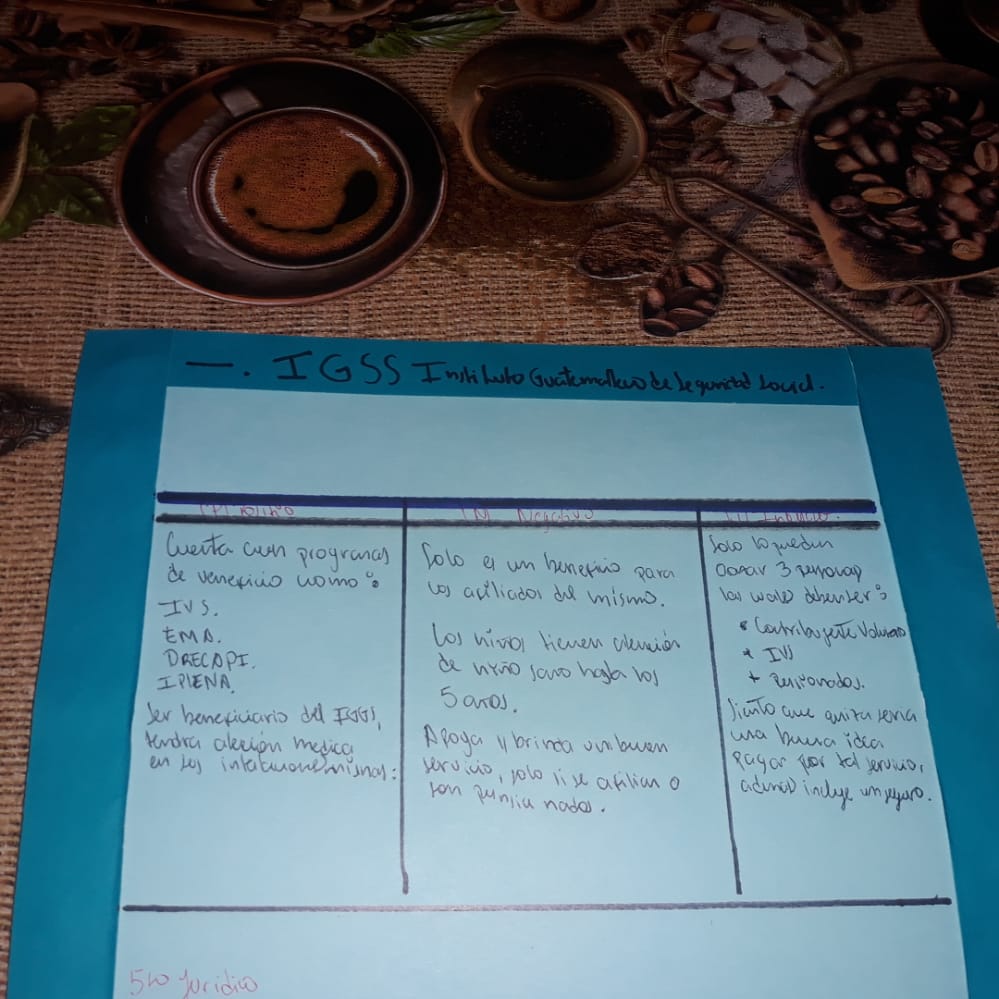 —. IGSS Instituto Guatemalteco de Seguridad Social.
Positivo
Negativo
Cuenta cuen programas
de veneficio como:
IVS.
EMA.
DRECAPI.
IPIENA.
Ser beneficiario del IGGS,
tendra atección medica
en las
Solo es un beneficio para
los afiliados del mismo.
Los niños tienen atención
de niño sano hasta los
5 años.
Apoya y brinda un buen
servicio, solo si se afilian o
son
Solo lo pueden
3 personas
deben ser:
• Contribuyente Voluntario
* IVS
+ Pensionados.
Siento que quiza seria
una buena idea
pagar por tal servicio,
ademas incluye un seguro.
5to Juridico